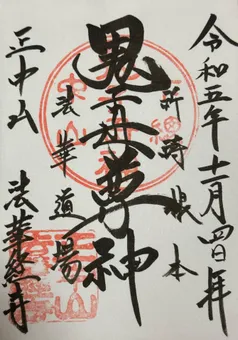 令和五年十一月四日拝
祈祷根本
鬼子母尊神
法華道場
正中山
法華経寺